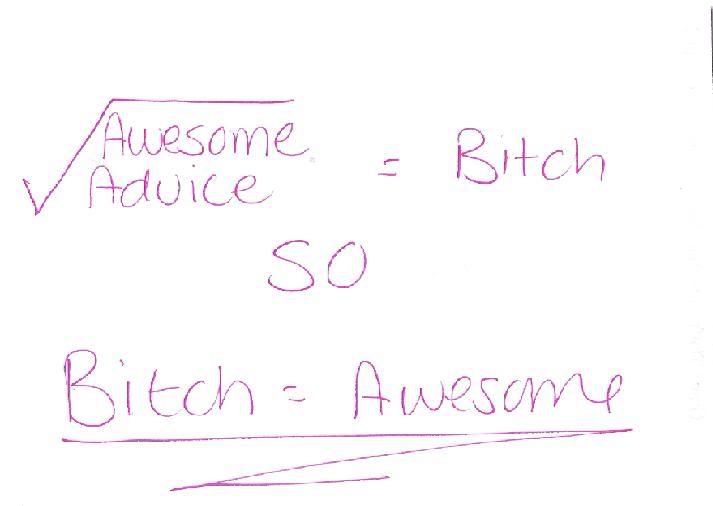 √Awesome
Advice = Bitch
SO
Bitch = Awesome